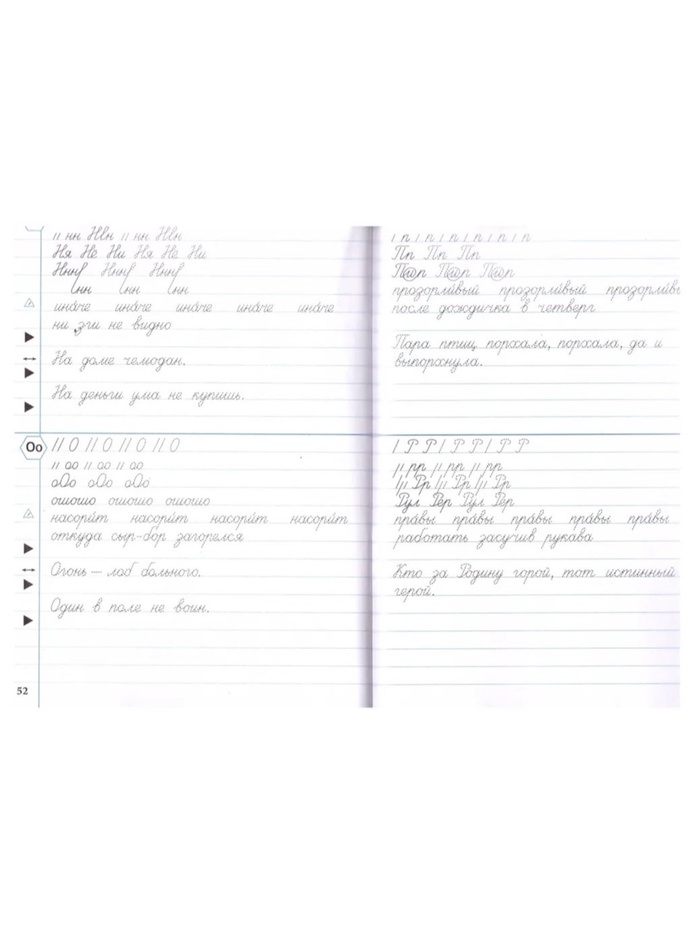 ıı нн Нвн ıı нн Нвн
Ня Не Ни Ня Не Ни
Нннf Нннf Нннf
нн нн нн
ина́че ина́че ина́че ина́че ина́че
ни зги не видно
На доме чемодан.
На деньги ума не купишь.
Оо
// О // О // О // О
ıı оо ıı оо ıı оо
оОо оОо оОо
ошошо ошошо ошошо
насори́т насори́т насори́т насори́т
откуда сыр-бор загорелся
Огонь — лоб больного.
Один в поле не воин.
52
/ п / п / п / п / п / п
Пп Пп Пп
П@п П@п П@п
прозорли́вый прозорли́вый прозорли́вы
после дождичка в четверг
Пара птиц порхала, порхала, да и
выпорхнула.
/ Р Р / Р Р / Р Р
ıı рр ıı рр ıı рр
Рр Рр Рр
Рул Рер Рул Рер
пра́вы пра́вы пра́вы пра́вы пра́вы
работать засучив рукава
Кто за Родину горой, тот истинный
герой.